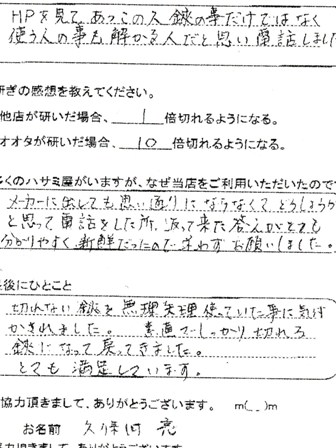 HPを見て、あっこの人鋏の事だけではなく
使う人の事も解かる人だと思い電話しまし
研ぎの感想を教えてください。
他店が研いだ場合、 1 倍切れるようになる。
オオタが研いだ場合、 10 倍切れるようになる。
多くのハサミ屋がいますが、なぜ当店をご利用いただいたので
メーカーに出しても思い通りにならなくてどうしようか
と思って電話をした所、返って来た答えがとても
分かりやすく新鮮だったので迷わずお願いしました。
最後にひとこと
切れない鋏を無理矢理使っていた事に気付
かされました。 素直でしっかり切れる
鋏になって戻ってきました。
とても満足しています。
協力頂きまして、ありがとうございます。 m(_)m
お名前 久保田 亮
協力頂きまして、ありがとうございます